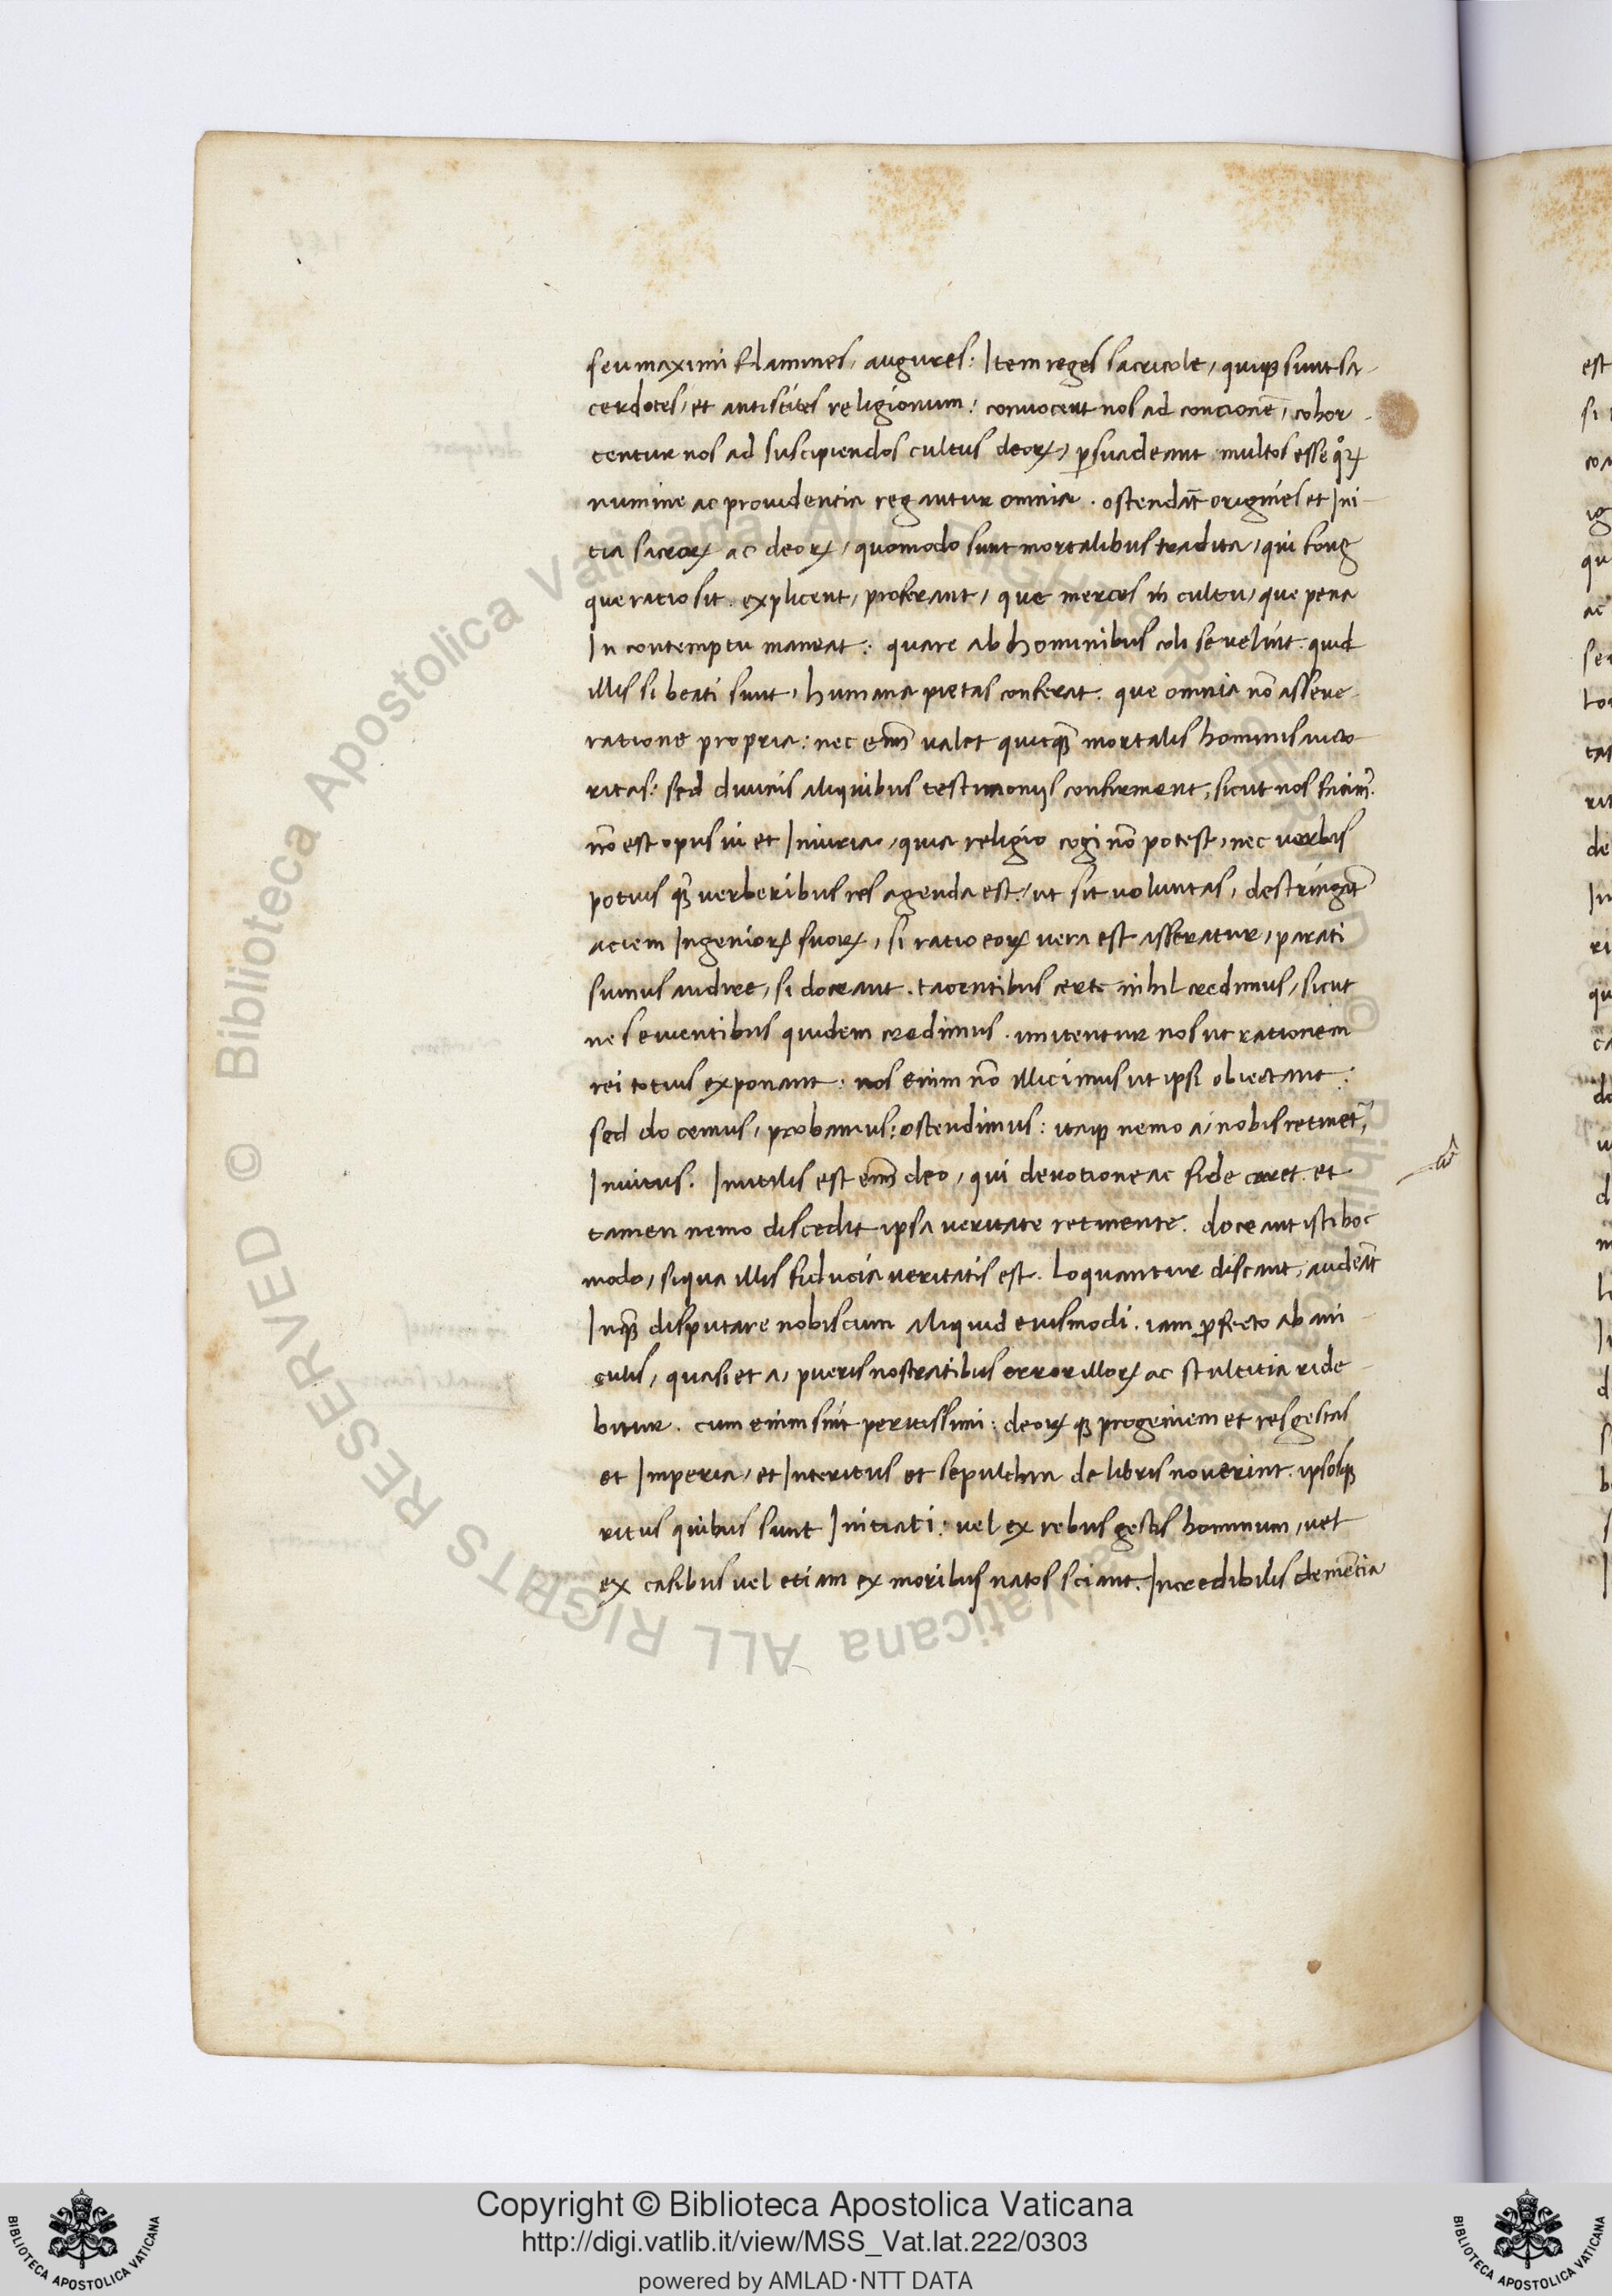 seu maximi flamines, augures: Item reges sacricole, quiq; sunt sa-
cerdotes, et antistites religionum: conuocent nos ad concionẽ, cohor-
tentur nos ad suscipiendos cultus deoꝝ, ꝑsuadeant multos esse qͦꝝ
numine ac prouidentia regantur omnia. ostendãt origines et Ini-
tia sacroꝝ ac deoꝝ, quomodo sunt mortalibus tradita, qui fons
que ratio sit. explicent, proferant, que merces in cultu, que pena
In contemptu maneat: quare ab hominibus coli se uelint. quid
illis si beati sunt, humana pietas conferat. que omnia nõ asseue-
ratione propria: nec enĩ ualet quicq̃ mortalis hominis aucto-
ritas: sed diuinis aliquibus testimonijs confirment, sicut nos facimꝰ.
nõ est opus ui et Iniuria, quia religio cogi nõ potest, nec uerbis
potius q̃ uerberibus res agenda est, ut sit uoluntas, destringãt
aciem Ingenioꝝ suoꝝ, si ratio eoꝝ uera est asseratur, parati
sumus audire, si doceant. tacentibus certe nihil credimus, sicut
ne seuientibus quidem credimus. imitentur nos ut rationem
rei totius exponant: nos enim nõ illicimus ut ipsi obiectant:
sed docemus, probamus: ostendimus: itaq; nemo a, nobis retinet̃,
Inuitus. Inutilis est enĩ deo, qui deuotione ac fide caret. et
tamen nemo discedit ipsa ueritate retinente. doceant isti hoc
modo, siqua illis fiducia ueritatis est. loquantur discant, audeãt
Inq̃ disputare nobiscum aliquid eiusmodi. iam ꝓfecto ab ani-
culis, quasi et a, pueris nostratibus error illoꝝ ac stultitia ride-
bitur. cum enim sint peritissimi: deoꝝ q; progeniem et res gestas
et Imperia, et Interitus et sepulchra de libris nouerint. ipsosq;
ritus quibus sunt Initiati: uel ex rebus gestis hominum, uel
ex casibus uel etiam ex moribus natos sciant. Incredibilis demẽtia
Copyright © Biblioteca Apostolica Vaticana
http://digi.vatlib.it/view/MSS_Vat.lat.222/0303
powered by AMLAD·NTT DATA